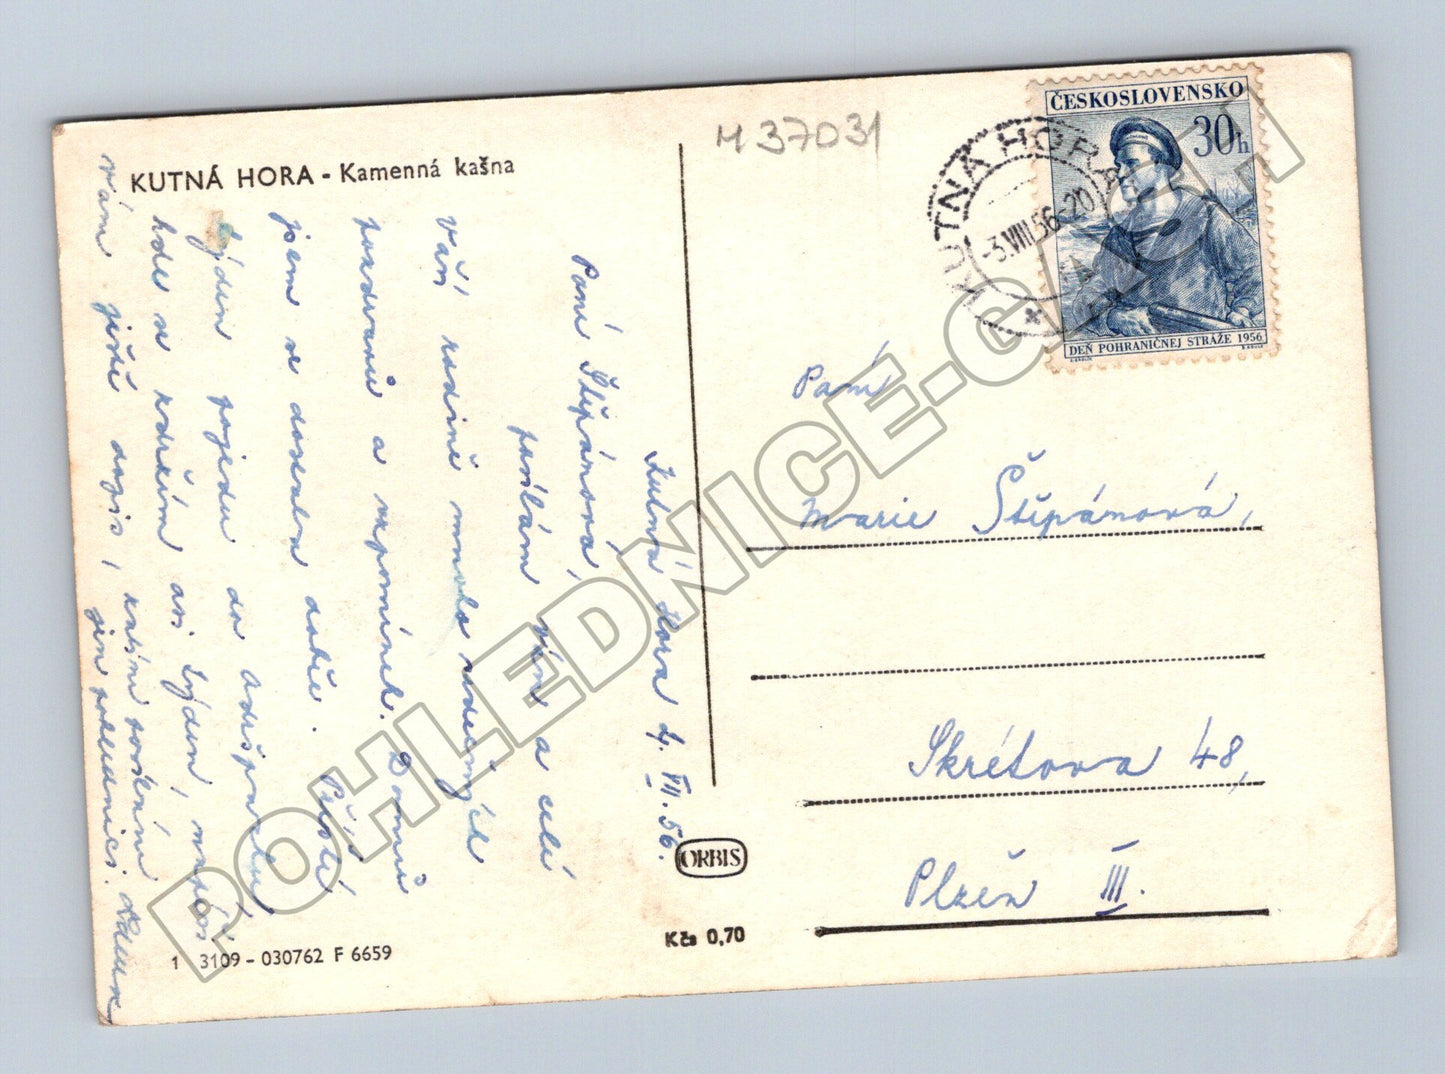 KUTNÁ HORA - Kamenná kašna
M 37031
KUTNÁ HORA
-3.VIII.56-20
ČESKOSLOVENSKO
30h
DEŇ POHRANIČNEJ STRÁŽE 1956
Kutná Hora 2. VII. 56.
Paní Štěpánová,
posílám vám a celé
Vaší rodině mnoho srdečných
pozdravů a vzpomínek. Domů
jsem se dostala dobře. Příští
týden pojedu do Adršpachu,
zdržím asi týden,
vám ještě dopis,
jen pohlednici.
Paní
Marie Štěpánová,
Škrétova 48,
Plzeň III.
ORBIS
Kčs 0,70
1 3109 - 030762 F 6659
POHLEDNICE-CZECH